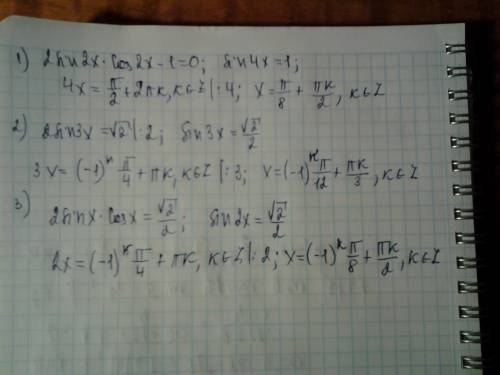 1) 2sin2x·cos2x-1=0; sin4x=1;
4x=π/2+2πk, k∈Z |:4; x=π/8+πk/2, k∈Z
2) 2sin3x=√2 |:2; sin3x=√2/2
3x=(-1)^k π/4+πk, k∈Z |:3; x=(-1)^k π/12+πk/3, k∈Z
3) 2sinx·cosx=√2/2; sin2x=√2/2
2x=(-1)^k π/4+πk, k∈Z |:2; x=(-1)^k π/8+πk/2, k∈Z